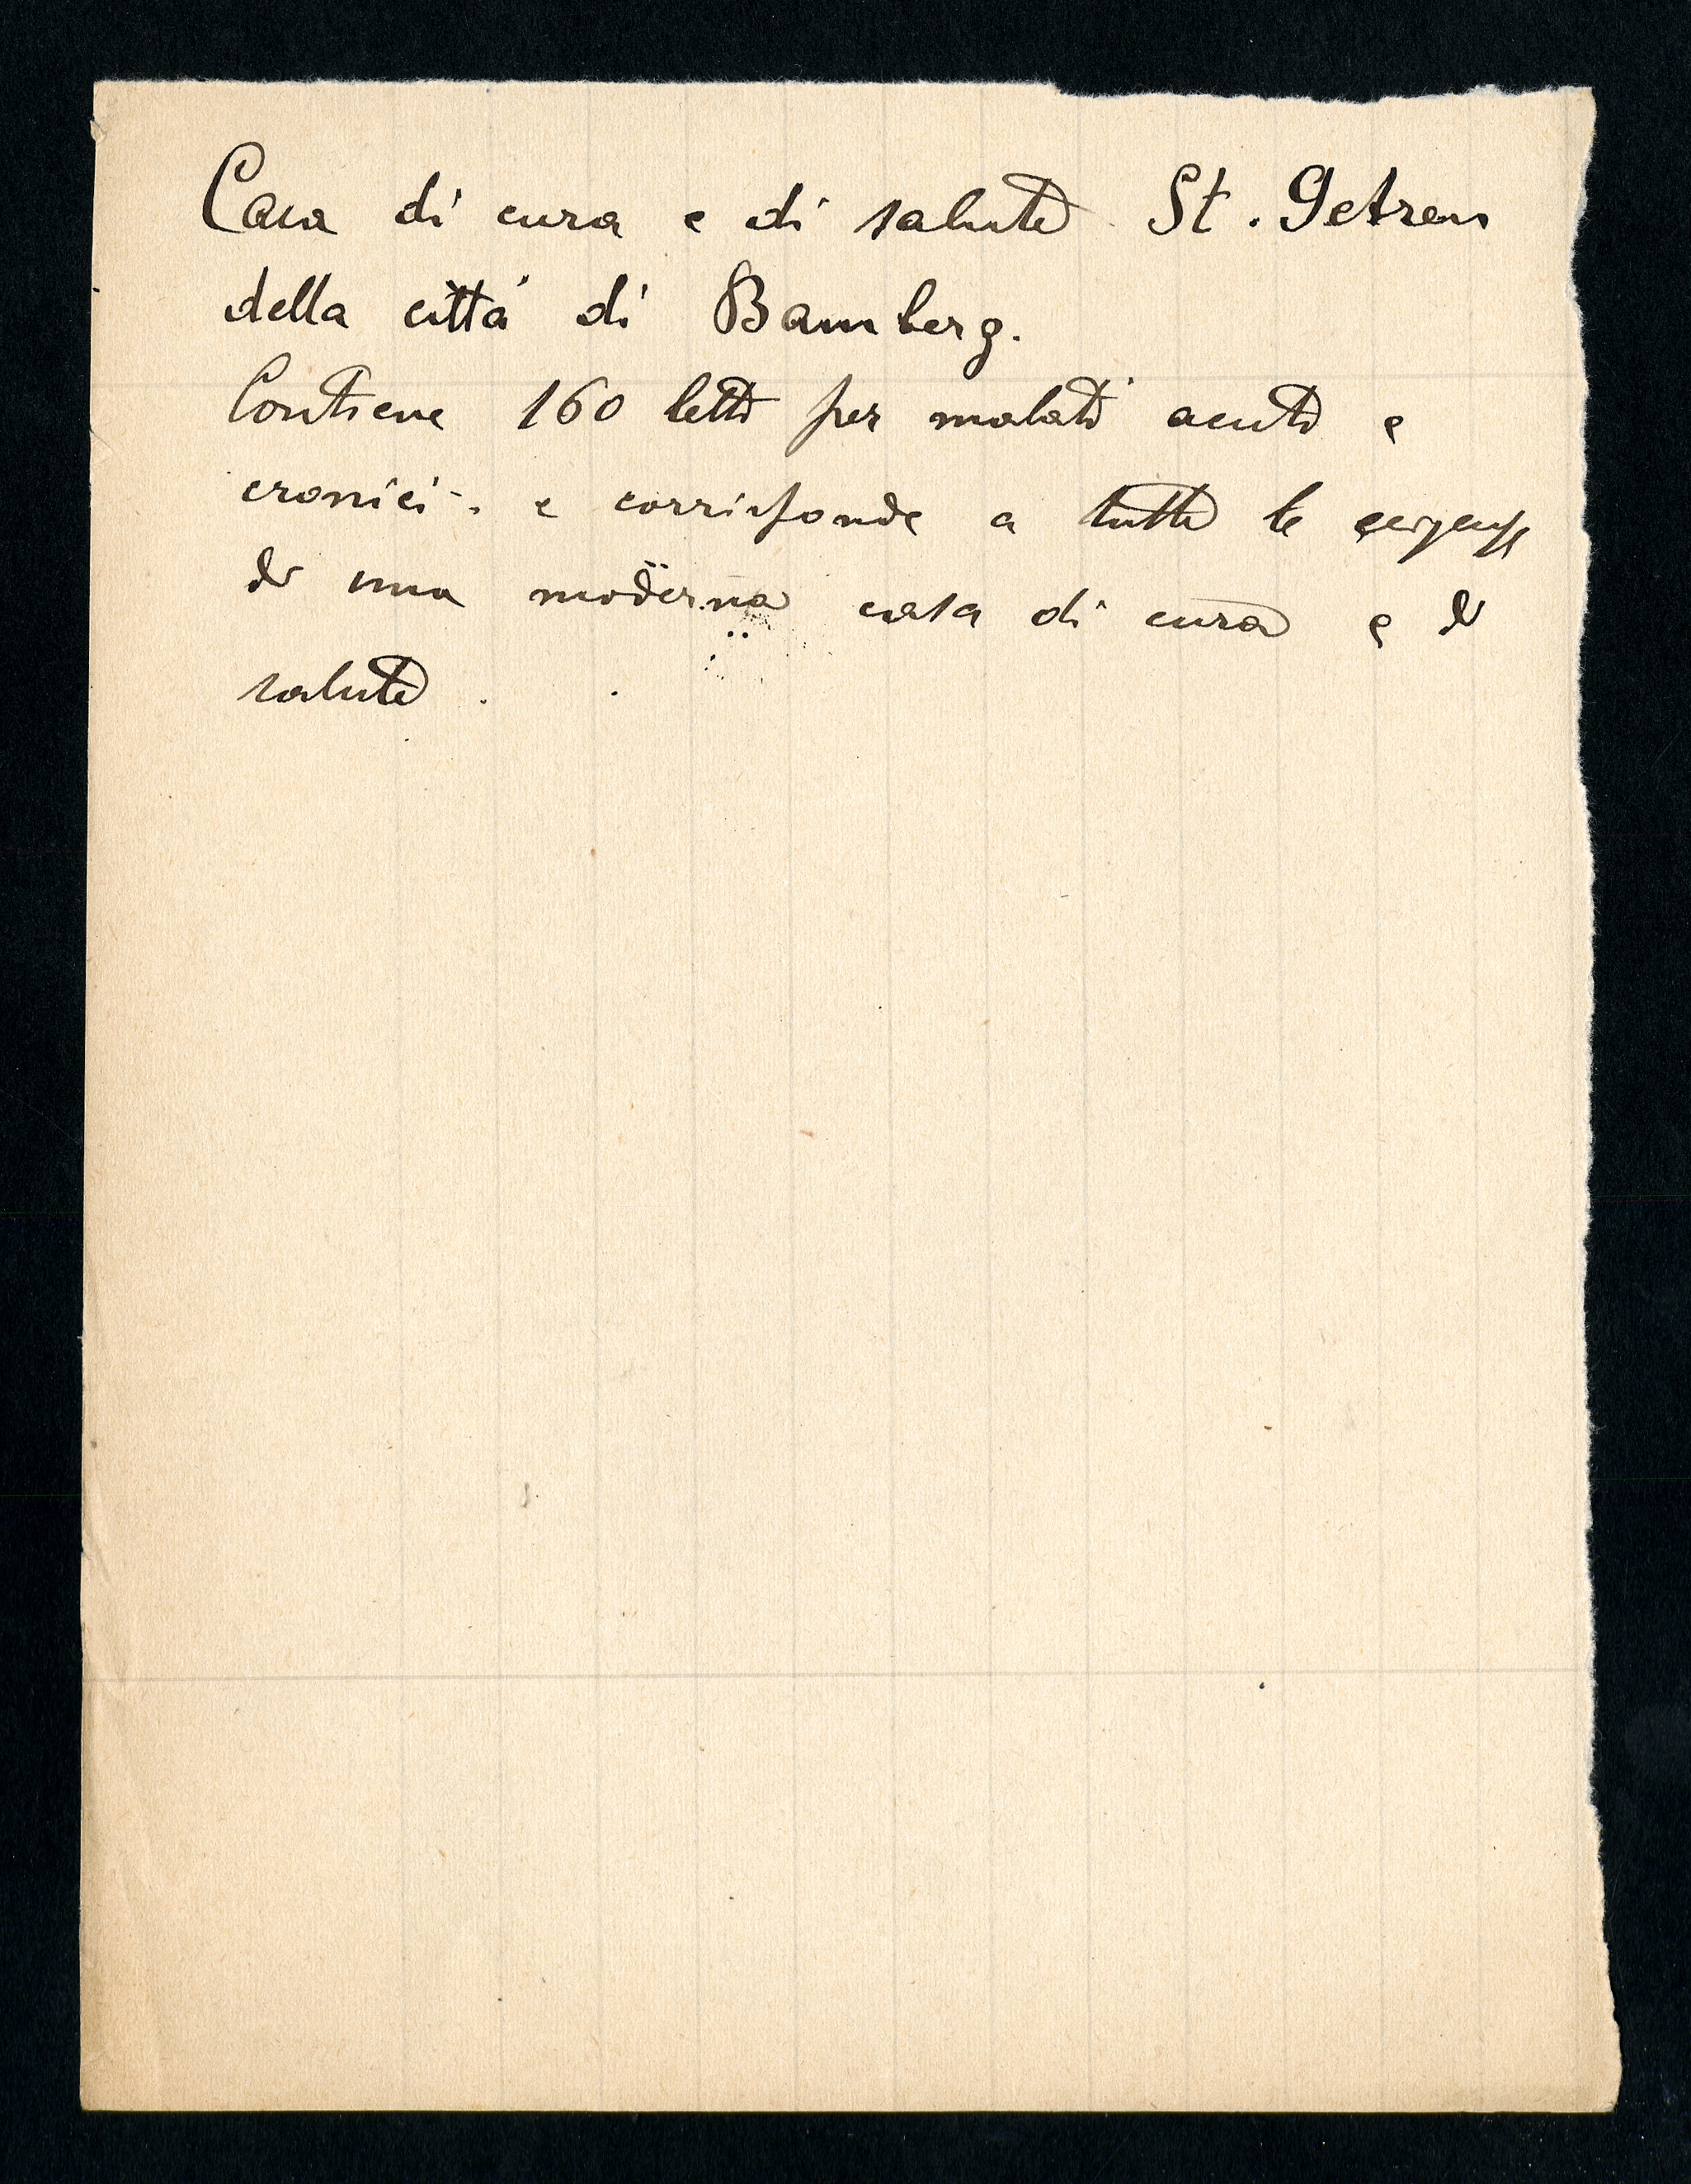 Casa di cura e di salute St. Getreu
della città di Bamberg.
Contiene 160 letti per malati acuti e
cronici. e corrisponde a tutte le esigenze
di una moderna casa di cura e di
salute.